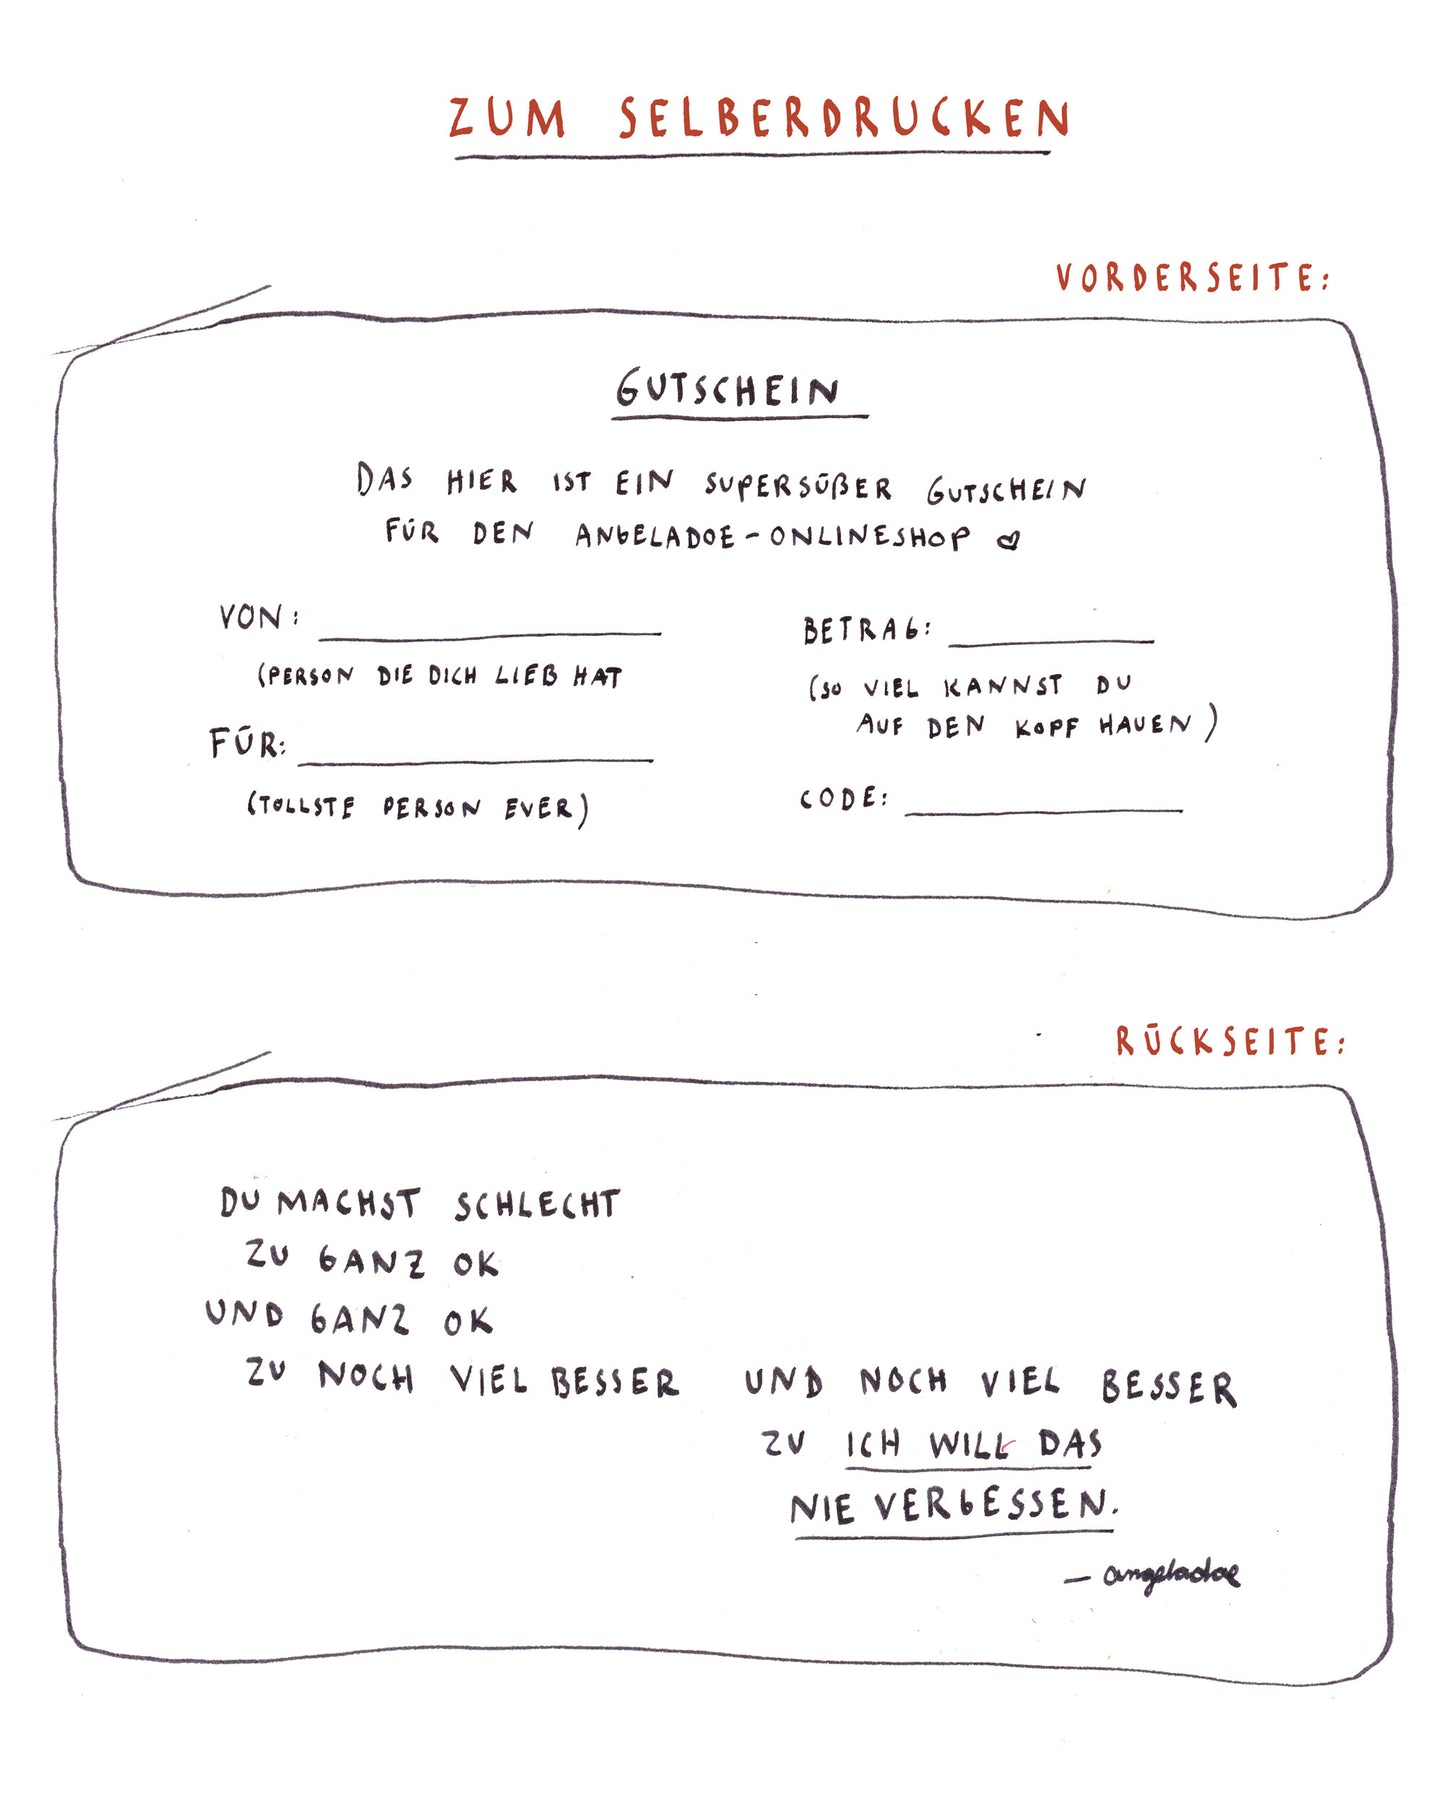 ZUM SELBERDRUCKEN
VORDERSEITE:
GUTSCHEIN
DAS HIER IST EIN SUPERSÜßER GUTSCHEIN
FÜR DEN ANGELADOE-ONLINESHOP ♡
VON: ____________
(PERSON DIE DICH LIEB HAT
FÜR: ____________
(TOLLSTE PERSON EVER)
BETRAG: ________
(SO VIEL KANNST DU
AUF DEN KOPF HAUEN)
CODE: __________
RÜCKSEITE:
DU MACHST SCHLECHT
ZU GANZ OK
UND GANZ OK
ZU NOCH VIEL BESSER
UND NOCH VIEL BESSER
ZU ICH WILL DAS
NIE VERGESSEN.
— angeladoe